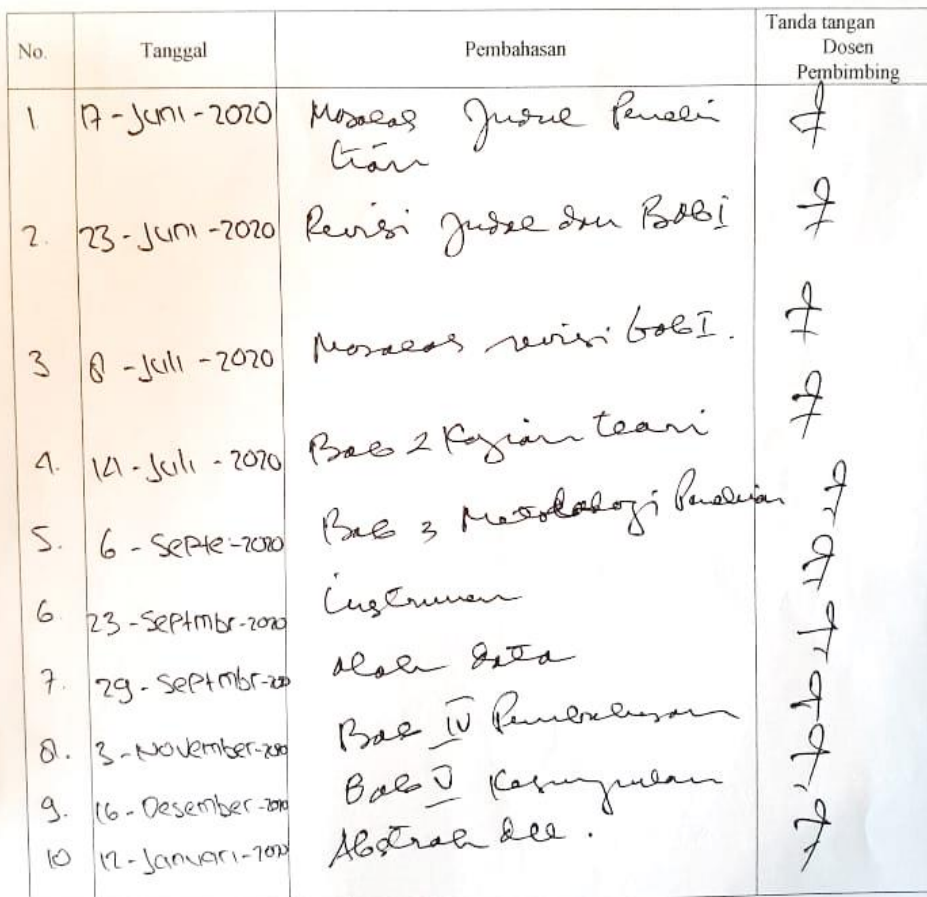 No. Tanggal Pembahasan Tanda tangan
Dosen
Pembimbing
1 17-Juni-2020 Masalah Judul Peneli
tian
2. 23-Juni-2020 Revisi Judul dan Bab I
3 8-Juli-2020 revisi bab I.
4. 14-Juli-2020 Bab 2 Kajian teori
5. 6-Septe-2020 Bab 3 Metodologi Penelitian
6. 23-Septmbr-2020 instrumen
7. 29-Septmbr-2020 olah data
8. 3-November-2020 Bab IV Pembahasan
9. 16-Desember-2020 Bab V Kesimpulan
10 12-Januari-2020 Abstrak dll.